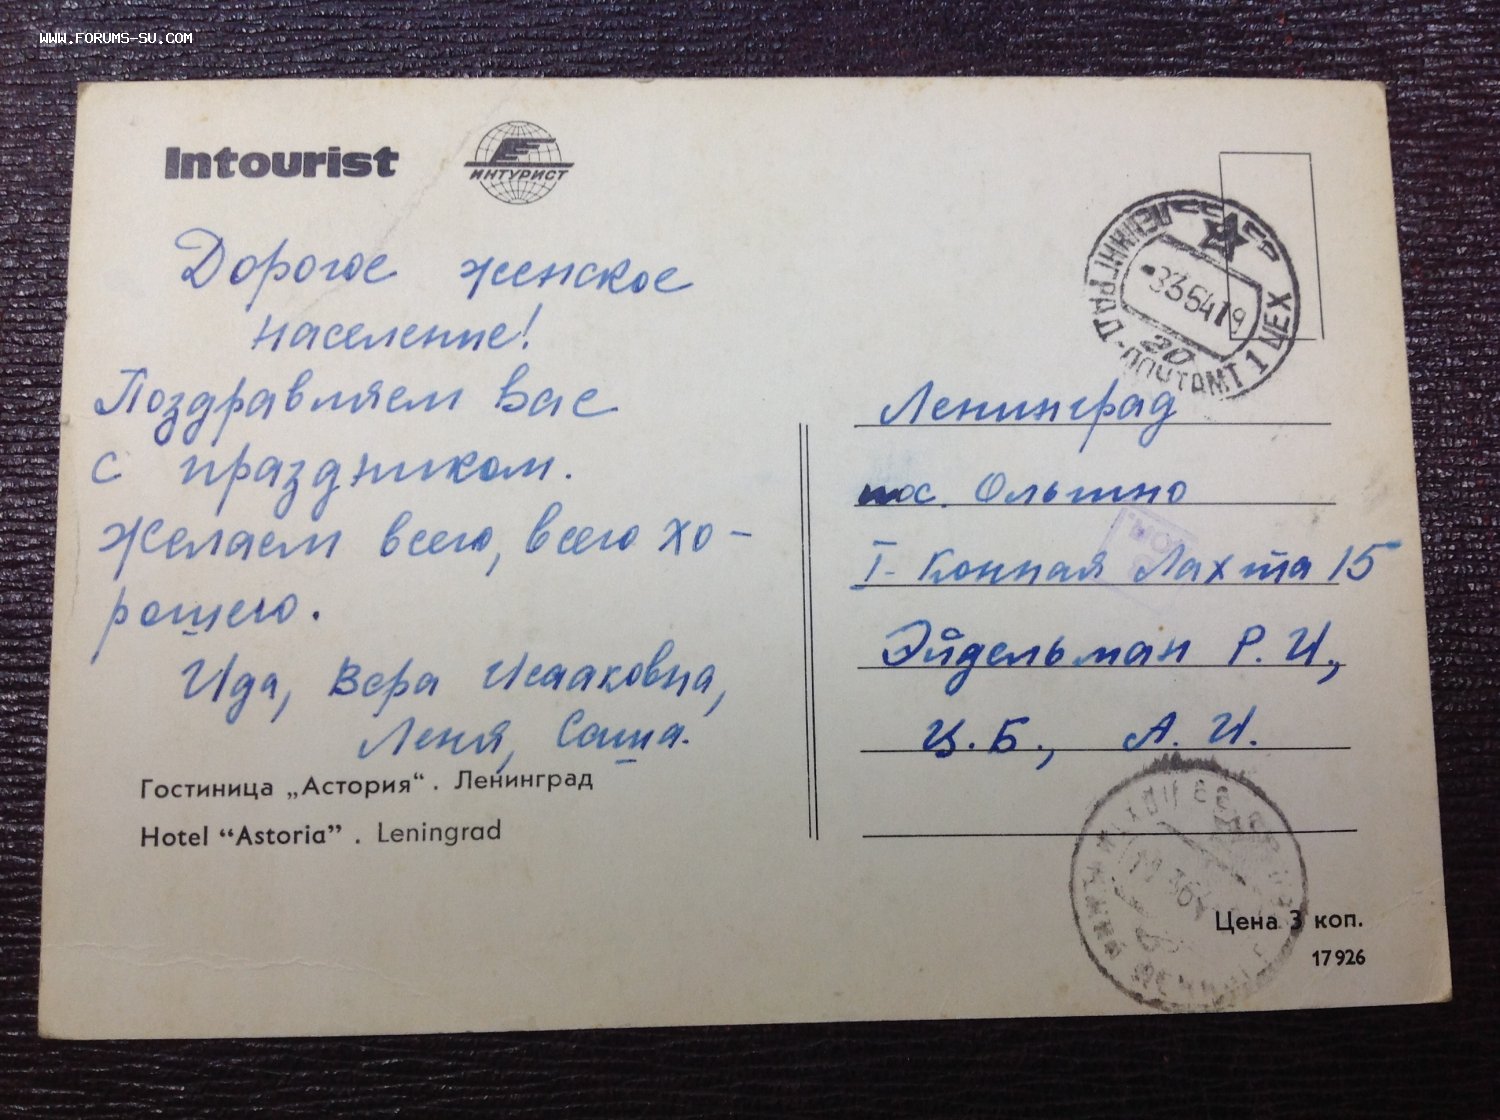 WWW.FORUMS-SU.COM
Intourist
ИНТУРИСТ
Дорогое женское
население!
Поздравляем Вас
с праздником.
Желаем всего, всего хо-
рошего.
Ида, Вера Исааковна,
Леня, Саша.
Гостиница „Астория“ . Ленинград
Hotel “Astoria” . Leningrad
ЛЕНИНГРАД-ПОЧТАМТ 1 ЦЕХ
Ленинград
пос. Ольгино
I- Конная Лахта 15
Эйдельман Р. И,
Ц. Б., А. И.
Цена 3 коп.
17926